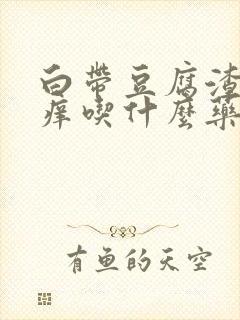 白帶豆腐渣
痒喫什麼藥
有鱼的天空